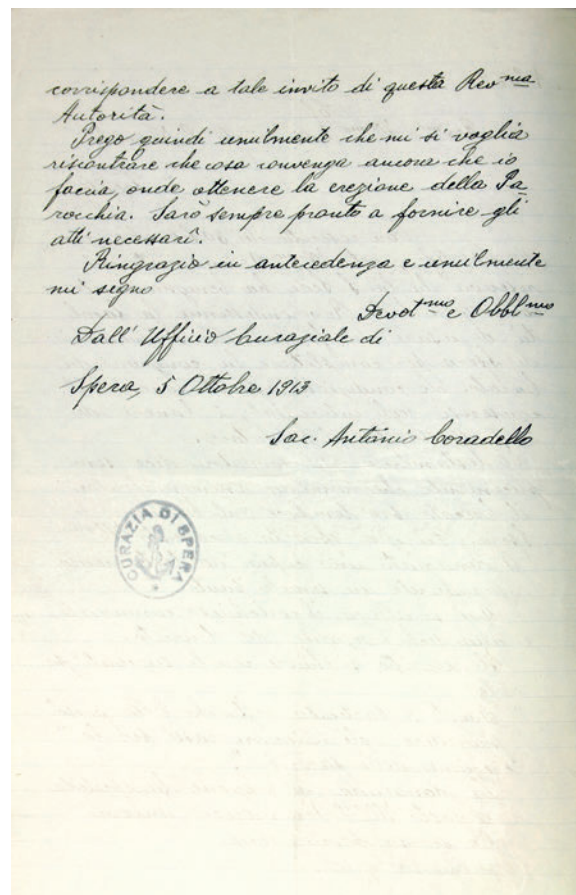 corrispondere a tale invito di questa Rev^ma
Autorità.
Prego quindi umilmente che mi si voglia
riscontrare che cosa convenga ancora che io
faccia, onde ottenere la erezione della Pa-
rocchia. Sarò sempre pronto a fornire gli
atti necessarî.
Ringrazio in antecedenza e umilmente
mi segno
Devot^mo e Obbl^mo
Dall' Ufficio Curaziale di
Spera, 5 Ottobre 1913
Sac. Antonio Coradello
CURAZIA DI SPERA